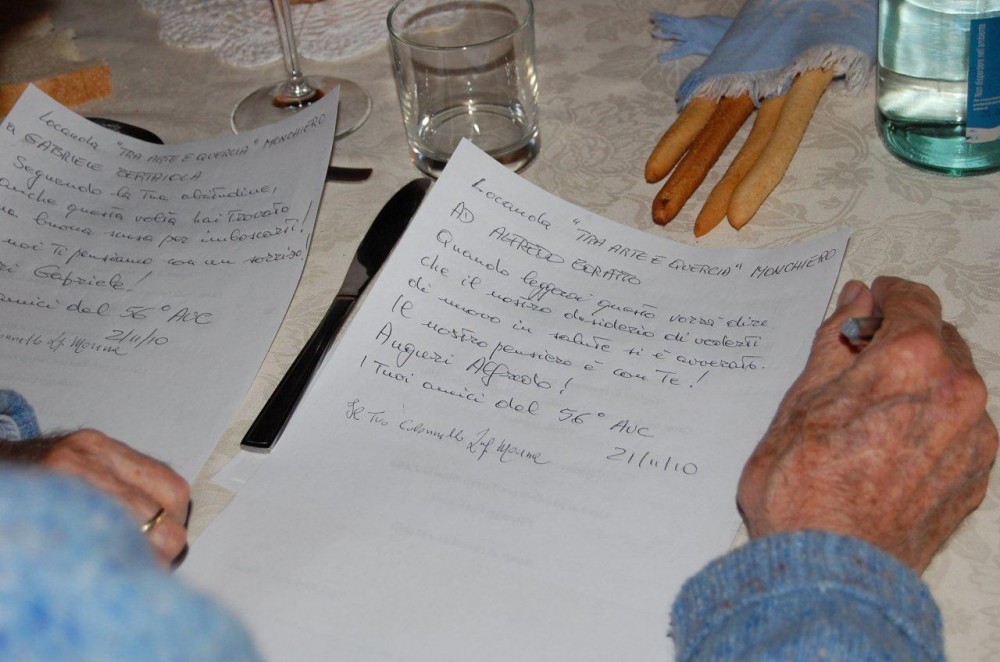 Locanda "TRA ARTE E QUERCIA" MONCHIERO
GABRIELE BERTAIOLA
Seguendo la tua abitudine,
anche questa volta hai trovato
buona scusa per imboscarti!
noi Ti pensiamo con un sorriso.
Gabriele!
amici del 56° AUC
21/11/10
Locanda "TRA ARTE E QUERCIA" MONCHIERO
AD ALFREDO
Quando leggerai questo vorrà dire
che il nostro desiderio di vederti
di nuovo in salute si è avverato.
Il nostro pensiero è con TE!
Auguri Alfredo!
I Tuoi amici del 56° AUC
21/11/10
Il Tuo Colonnello
Non disperdere nell'ambiente